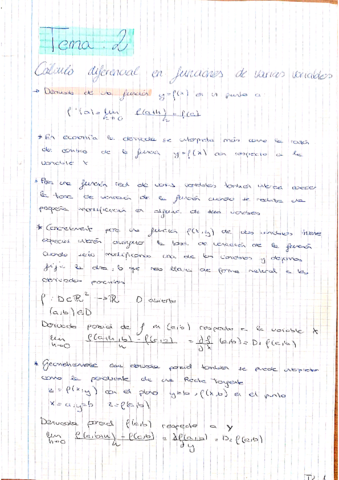 Tema 2
Cálculo diferencial en funciones de varias variables
→ Derivada de una función y=f(x) en un punto a
f'(a)=lim h→0 f(a+h) - f(a)
→ En economía la derivada se interpreta más como la tasa
de cambio de la función y=f(x) con respecto a la
variable x
Para una función real de varias variables también interesa conocer
la tasa de variación de la función cuando se realiza una
pequeña modificación en alguna de las variables
Concretamente para una función f(x,y) de dos variables tiene
especial interés averiguar la tasa de variación de la función
cuando solo modificamos una de las variables y dejamos
fija la otra, lo que nos lleva de forma natural a las
derivadas parciales
f: D⊂R² → R D abierto
(a,b)∈D
Derivada parcial de f en (a,b) respecto a la variable x
lim h→0
→ Geométricamente esta derivada parcial también se puede interpretar
como la pendiente de una Recta Tangente
z = f(x,y) con el plano y=b, en el punto
x=a, y=b z=f(a,b)
Derivada parcial f(a,b) respecto a y
lim h→0